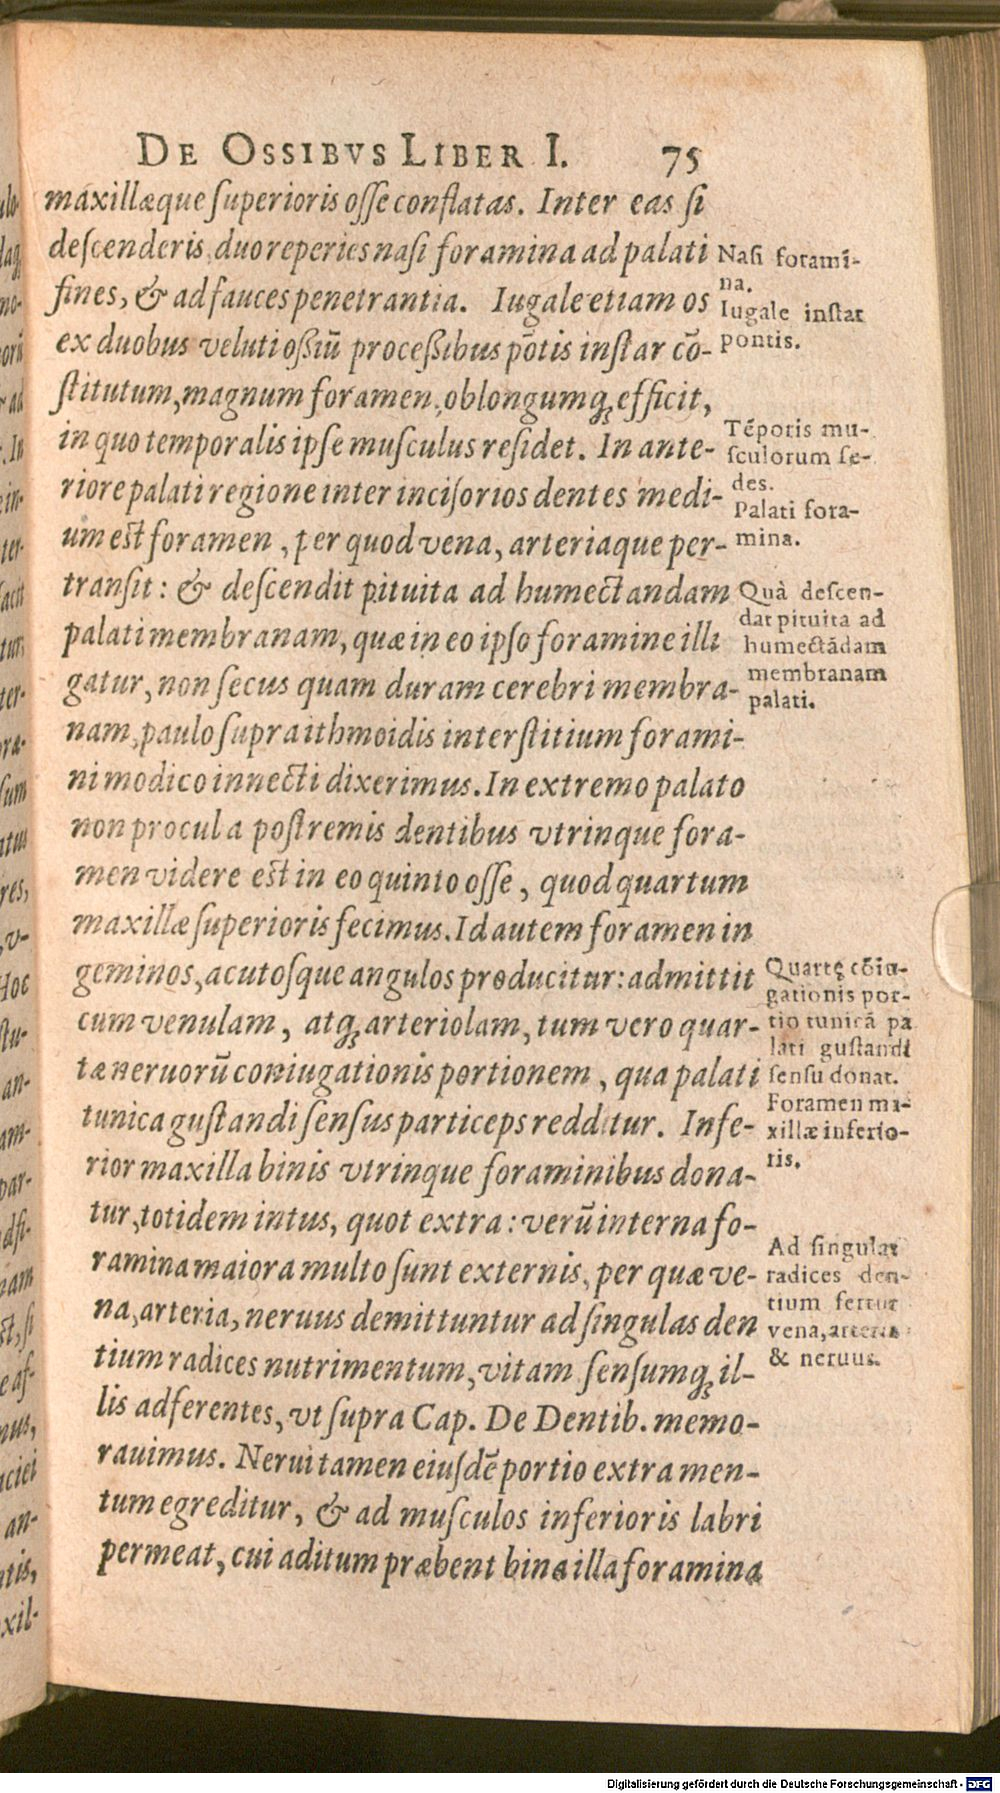 DE OSSIBVS LIBER I. 75
maxillæque superioris osse conflatas. Inter eas si
descenderis, duo reperies nasi foramina ad palati
fines, & ad fauces penetrantia. Iugale etiam os
ex duobus veluti ossiū processibus pōtis instar cō-
stitutum, magnum foramen, oblongumq; efficit,
in quo temporalis ipse musculus residet. In ante-
riore palati regione inter incisorios dentes medi-
um est foramen, per quod vena, arteriaque per-
transit: & descendit pituita ad humectandam
palati membranam, quæ in eo ipso foramine illi
gatur, non secus quam duram cerebri membra-
nam, paulo supra ithmoidis interstitium forami-
ni modico innecti dixerimus. In extremo palato
non procul a postremis dentibus vtrinque fora-
men videre est in eo quinto osse, quod quartum
maxillæ superioris fecimus. Id autem foramen in
geminos, acutosque angulos producitur: admittit
cum venulam, atq; arteriolam, tum vero quar-
tæ neruorū coniugationis portionem, qua palati
tunica gustandi sensus particeps redditur. Infe-
rior maxilla binis vtrinque foraminibus dona-
tur, totidem intus, quot extra: verū interna fo-
ramina maiora multo sunt externis, per quæ ve-
na, arteria, neruus demittuntur ad singulas den
tium radices nutrimentum, vitam sensumq; il-
lis adferentes, vt supra Cap. De Dentib. memo-
rauimus. Nerui tamen eiusdē portio extra men-
tum egreditur, & ad musculos inferioris labri
permeat, cui aditum præbent bina illa foramina
Nasi forami-
na.
Iugale instar
pontis.
Tēporis mu-
sculorum se-
des.
Palati fora-
mina.
Quà descen-
dat pituita ad
humectādam
membranam
palati.
Quartę cōiu-
gationis por-
tio tunicā pa
lati gustandi
sensu donat.
Foramen ma-
xillæ inferio-
ris.
Ad singulas
radices den-
tium fertur
vena, arteria
& neruus.
Digitalisierung gefördert durch die Deutsche Forschungsgemeinschaft - DFG